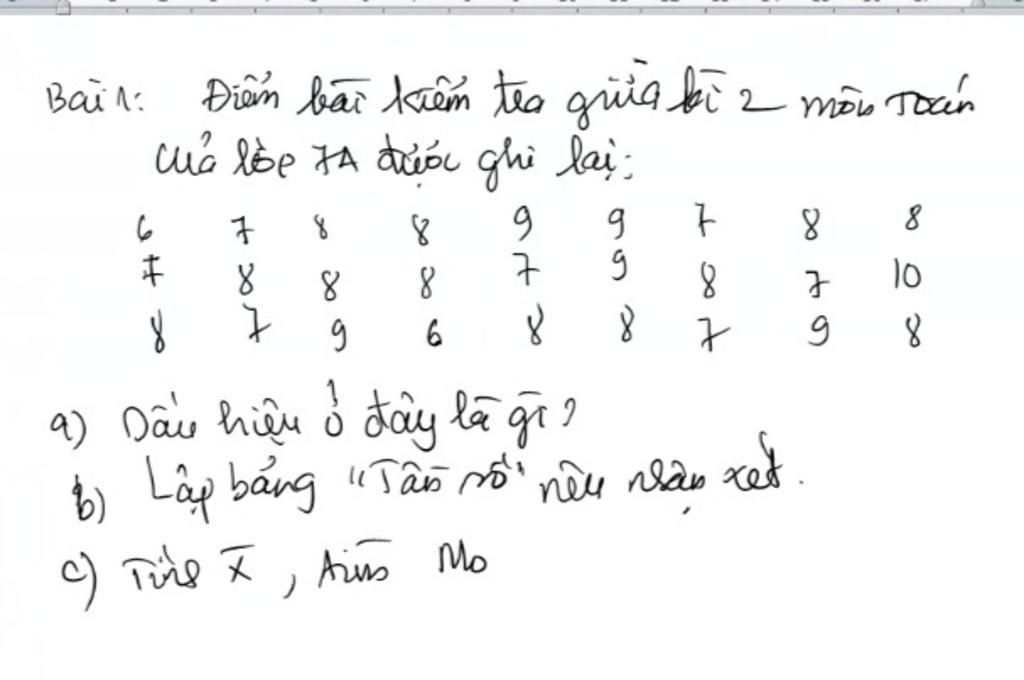 Bài 1: Điểm bài kiểm tra giữa kì 2 môn Toán
của lớp 7A được ghi lại:
6 7 8 8 9 9 7 8 8
7 8 8 8 7 9 8 7 10
8 7 9 6 8 8 7 9 8
a) Dấu hiệu ở đây là gì?
b) Lập bảng "Tần số" nêu nhận xét.
c) Tính X̄, tìm Mo